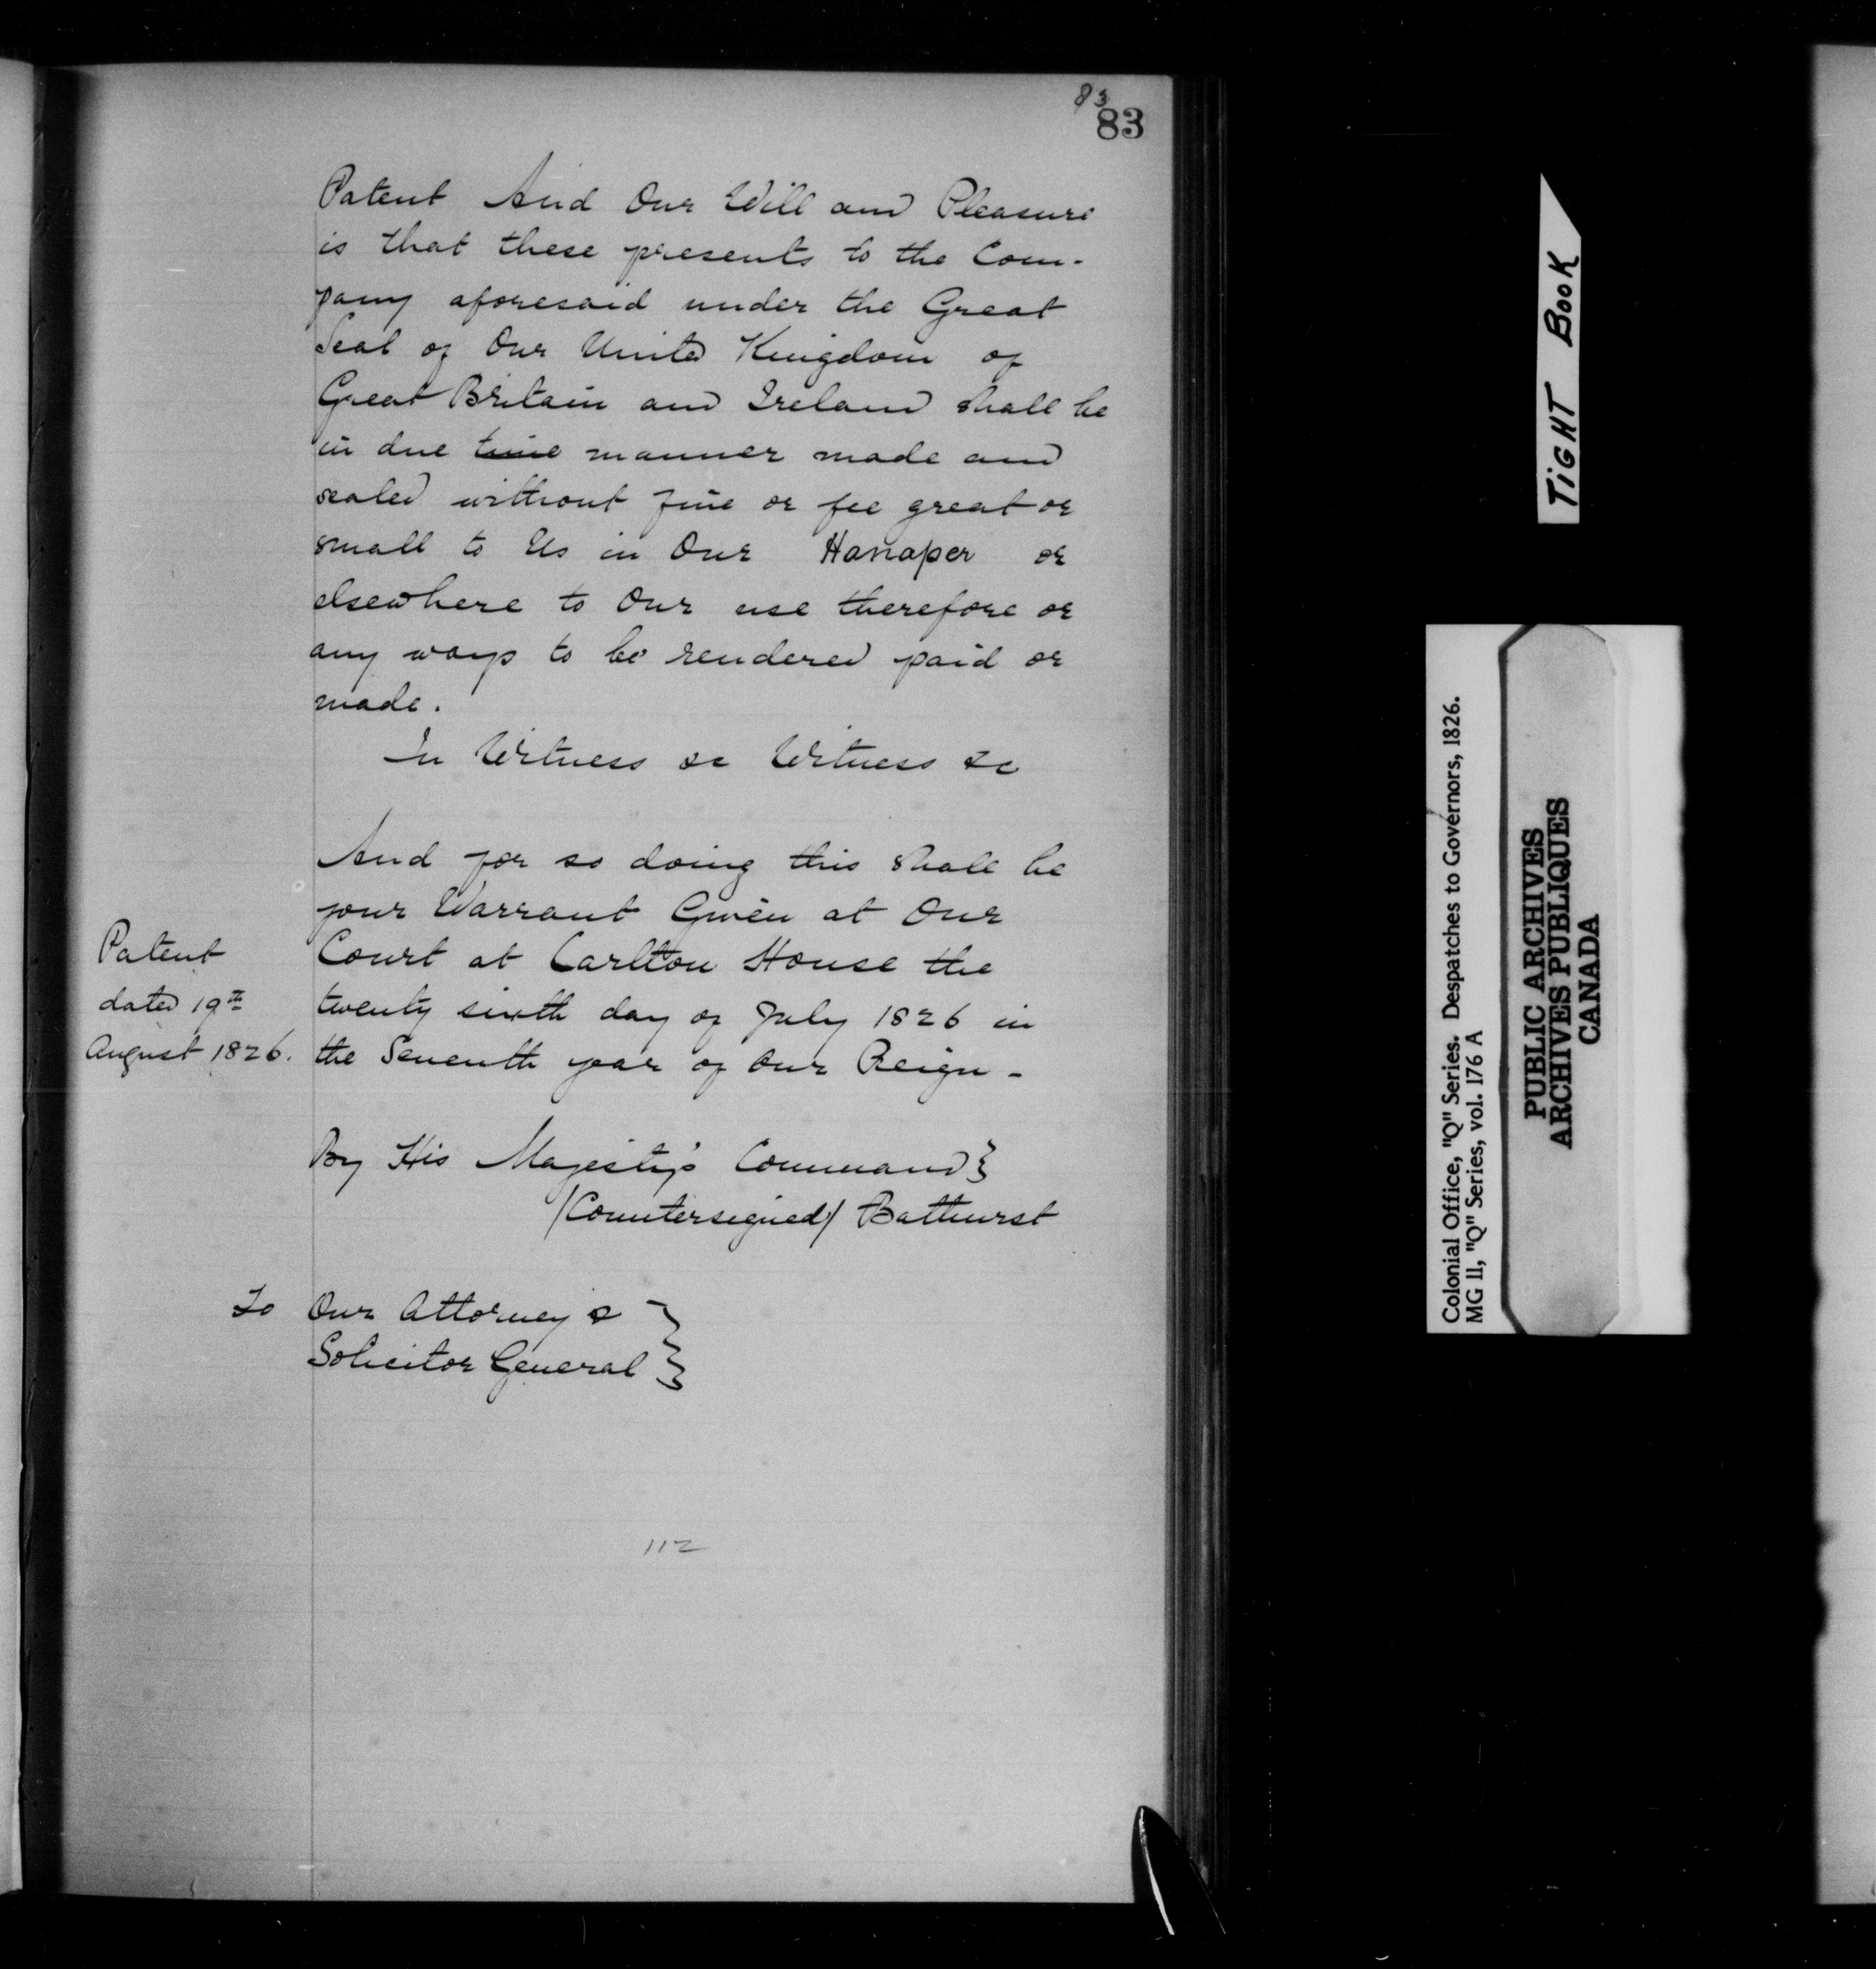 83
83
Patent And Our Will and Pleasure
is that these presents to the Com-
pany aforesaid under the Great
Seal of Our United Kingdom of
Great Britain and Ireland shall be
in due time manner made and
sealed without fine or fee great or
small to Us in Our Hanaper or
elsewhere to Our use therefore or
any ways to be rendered paid or
made.
In Witness &c Witness &c
And for so doing this shall be
your Warrant Given at Our
Court at Carlton House the
twenty sixth day of July 1826 in
the Seventh year of Our Reign -
Patent
dated 19th
August 1826.
By His Majesty's Command}
/Countersigned/ Bathurst
To Our Attorney &
Solicitor General }
112
TIGHT BOOK
Colonial Office, "Q" Series. Despatches to Governors, 1826.
MG 11, "Q" Series, vol. 176 A
PUBLIC ARCHIVES
ARCHIVES PUBLIQUES
CANADA